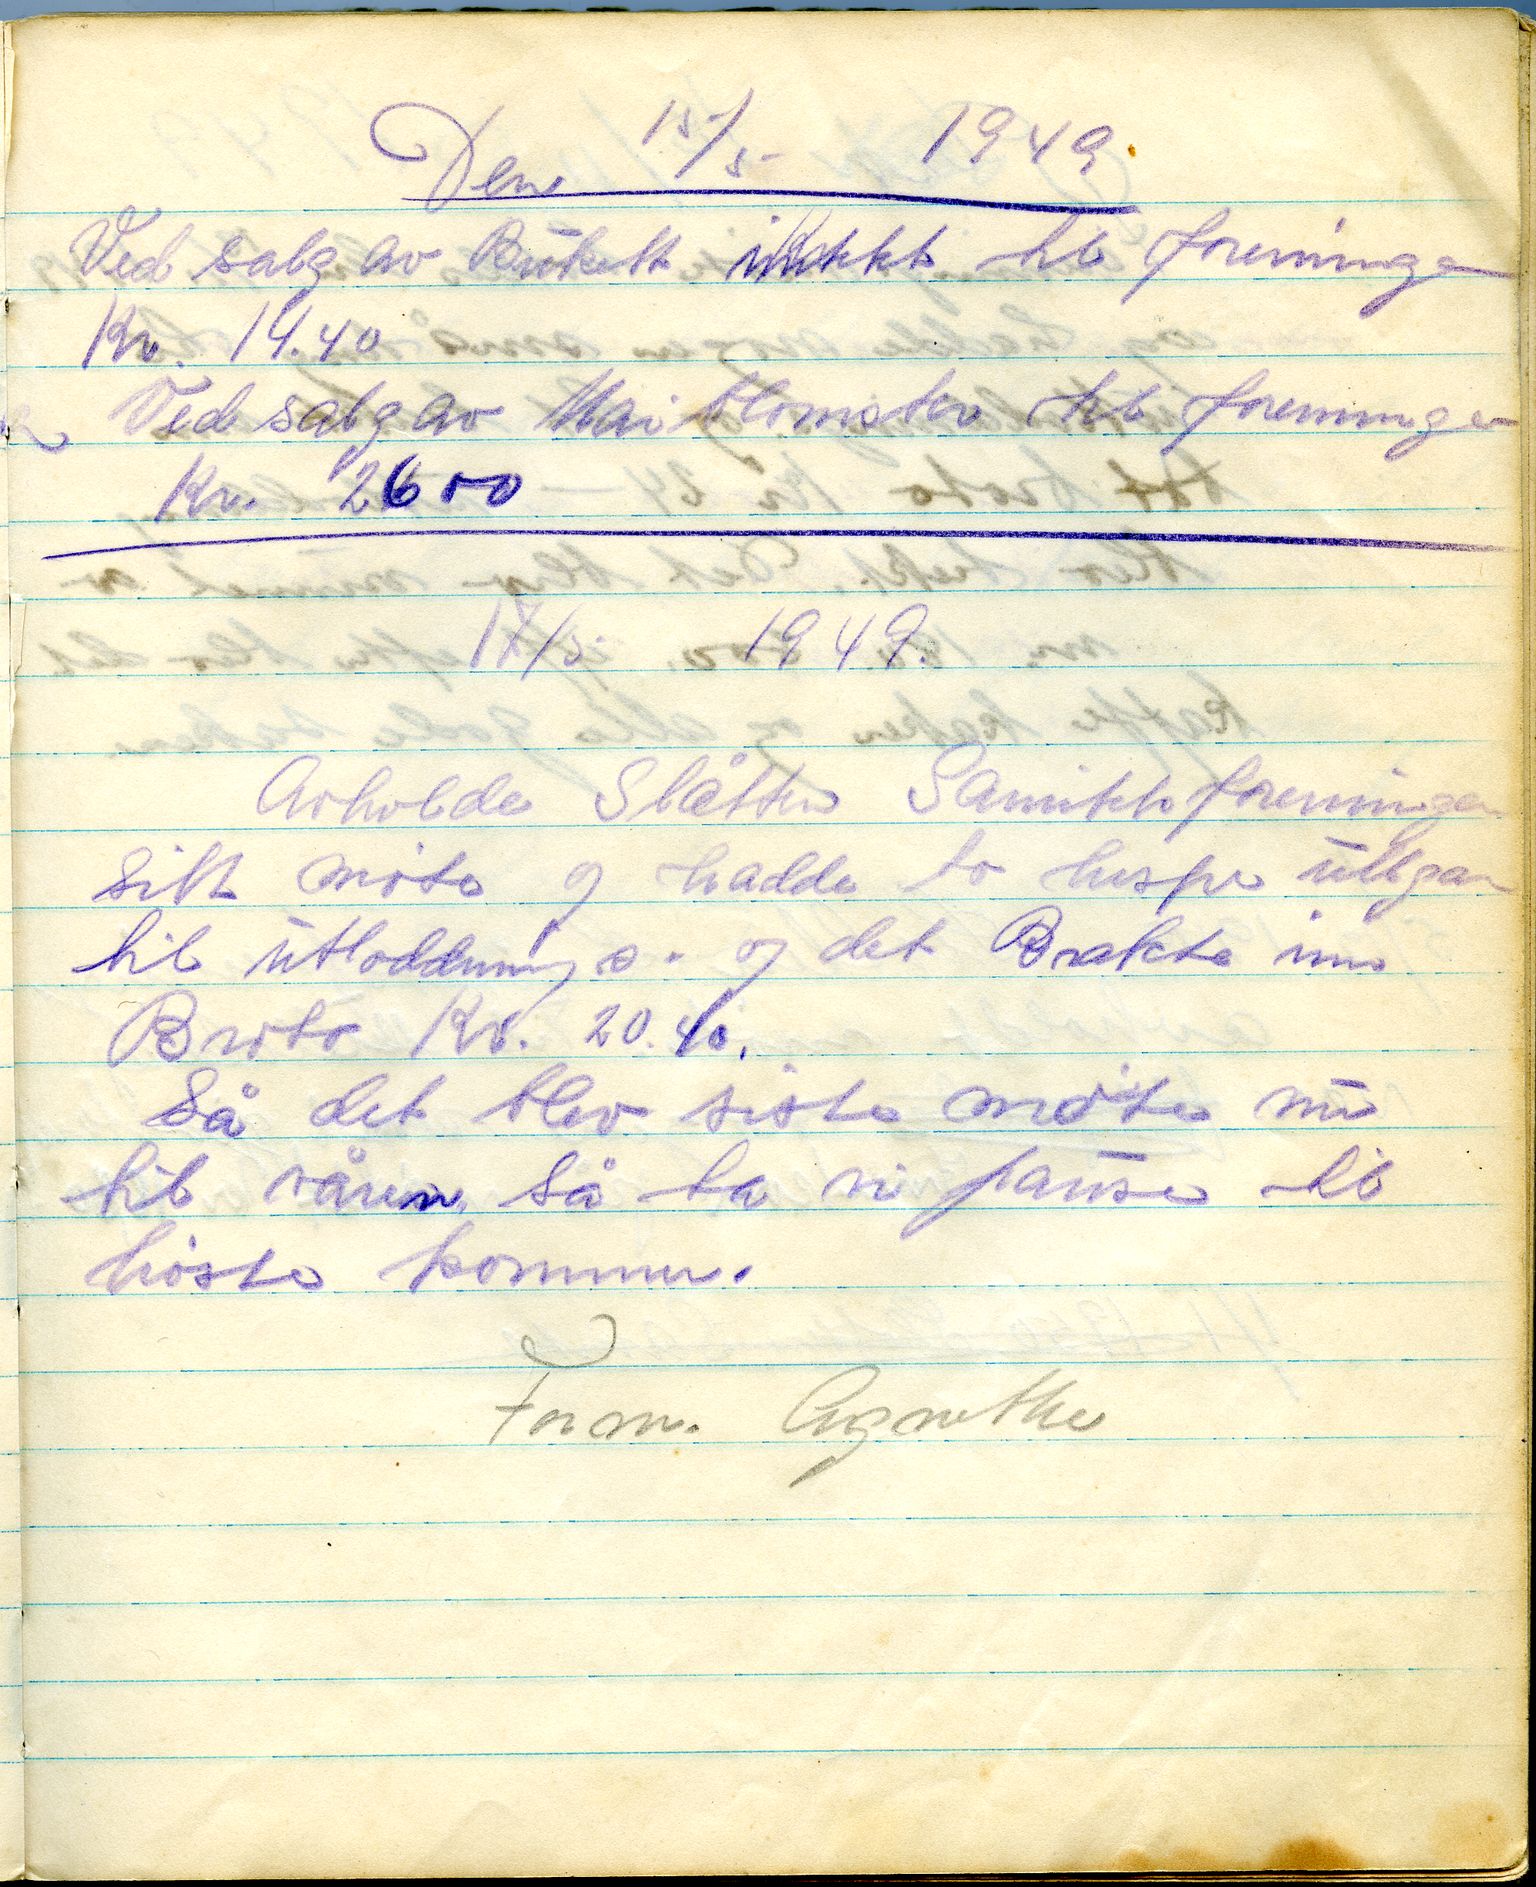 Den 15/5 1949.
Ved salg av Bukett inntekt til foreningen
Kr. 14.40
Ved salg av Mai blomster til foreningen
Kr. 26 00
17/5 1949.
Avholde Slåtten Sanitetsforeningen
sitt møte og hadde to hesper ullgarn
til utloddning. og det Brakte inn
Broto Kr. 20.40.
Så det blev siste møte nu
til våren, så ta vi pause til
høste kommer.
Form. Agnethe